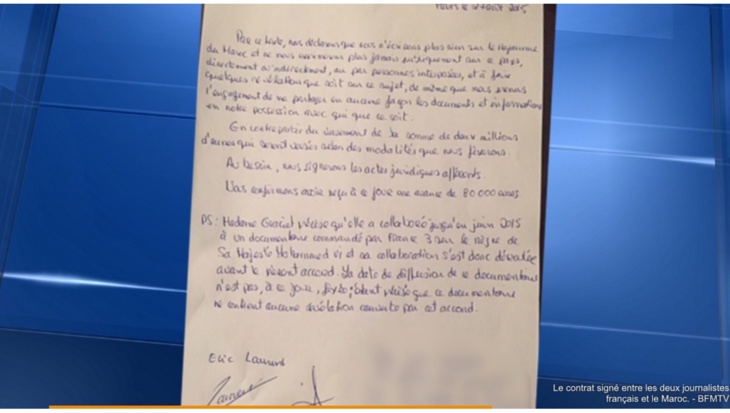 Paris le août 2015
Par ce texte, nous déclarons que nous n'écrirons plus rien sur le Royaume
du Maroc et ne nous exprimerons plus jamais publiquement sur ce pays,
directement ou indirectement, ou par personnes interposées, et à faire
quelques révélations que soit sur ce sujet, de même que nous prenons
l'engagement de ne partager en aucune façon les documents et informations
en notre possession avec qui que ce soit.
En contrepartie du versement de la somme de deux millions
d'euros qui seront versés selon des modalités que nous fixerons.
Au besoin, nous signerons les actes juridiques afférents.
Nous confirmons avoir reçu à ce jour une avance de 80 000 euros.
PS : Madame Graciet précise qu'elle a collaboré jusqu'en juin 2015
à un documentaire commandé par France 3 sur le règne de
Sa Majesté Mohammed VI et sa collaboration s'est donc déroulée
avant le présent accord. La date de diffusion de ce documentaire
n'est pas, à ce jour, fixée; étant précisé que ce documentaire
ne contient aucune révélation couverte par cet accord.
Eric Laurent
Le contrat signé entre les deux journalistes
français et le Maroc. - BFMTV